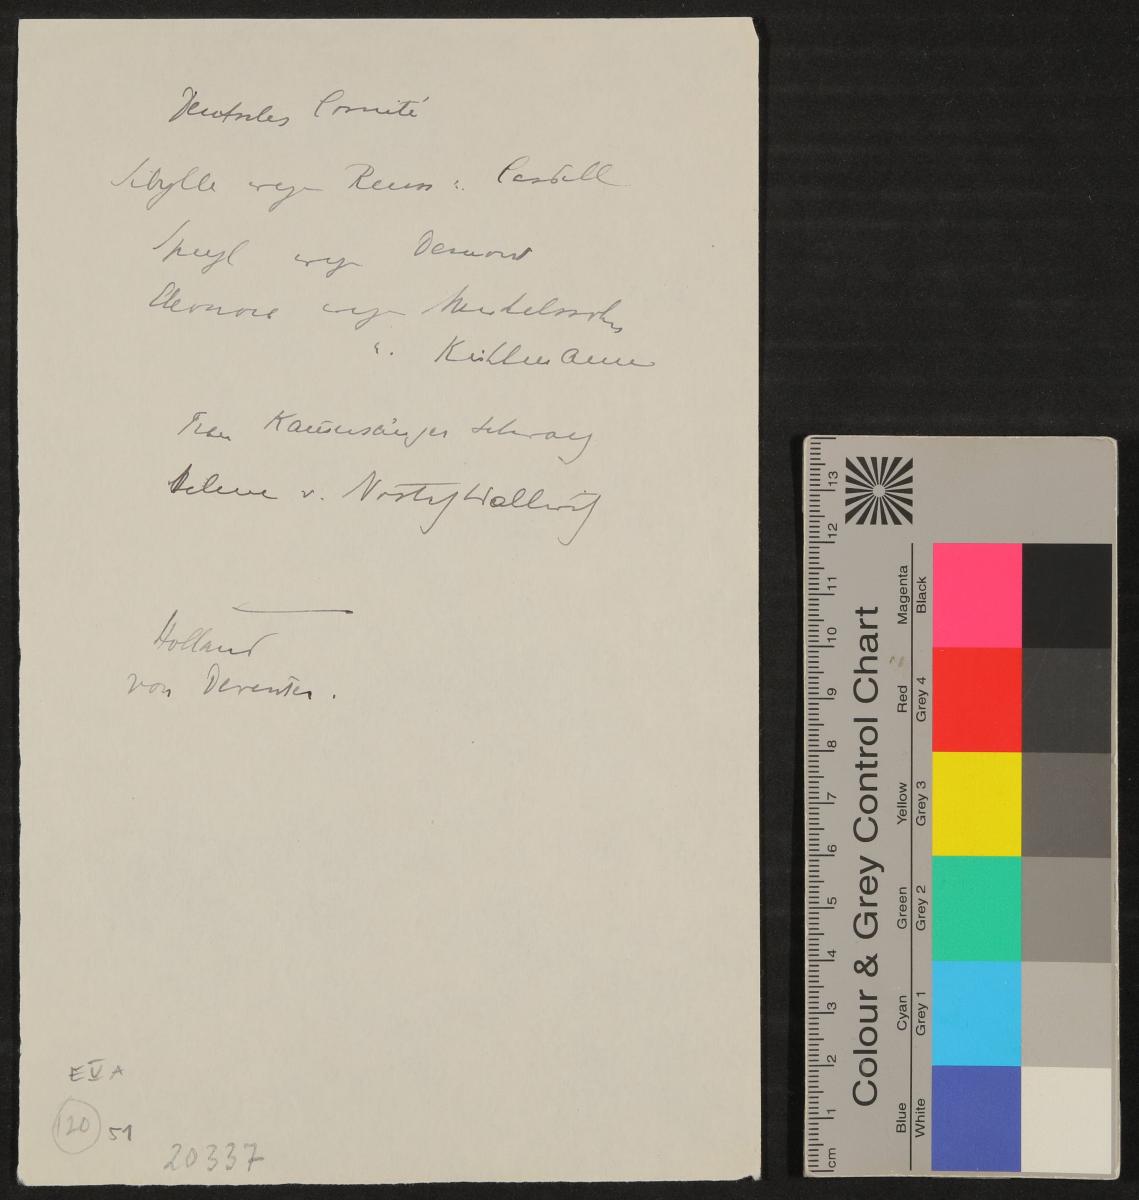 Deutsches Comité
Sibylle wegen Reuss u. Castell
wegen
Eleonore wegen Mendelssohn
". Kühlmann
Frau Kammersänger Schwarz
Helene v. Nostitz Wallwitz
Holland
von Deventer.
E V A
120 51
20337
Colour & Grey Control Chart
Blue Cyan Green Yellow Red Magenta
White Grey 1 Grey 2 Grey 3 Grey 4 Black
cm 1 2 3 4 5 6 7 8 9 10 11 12 13